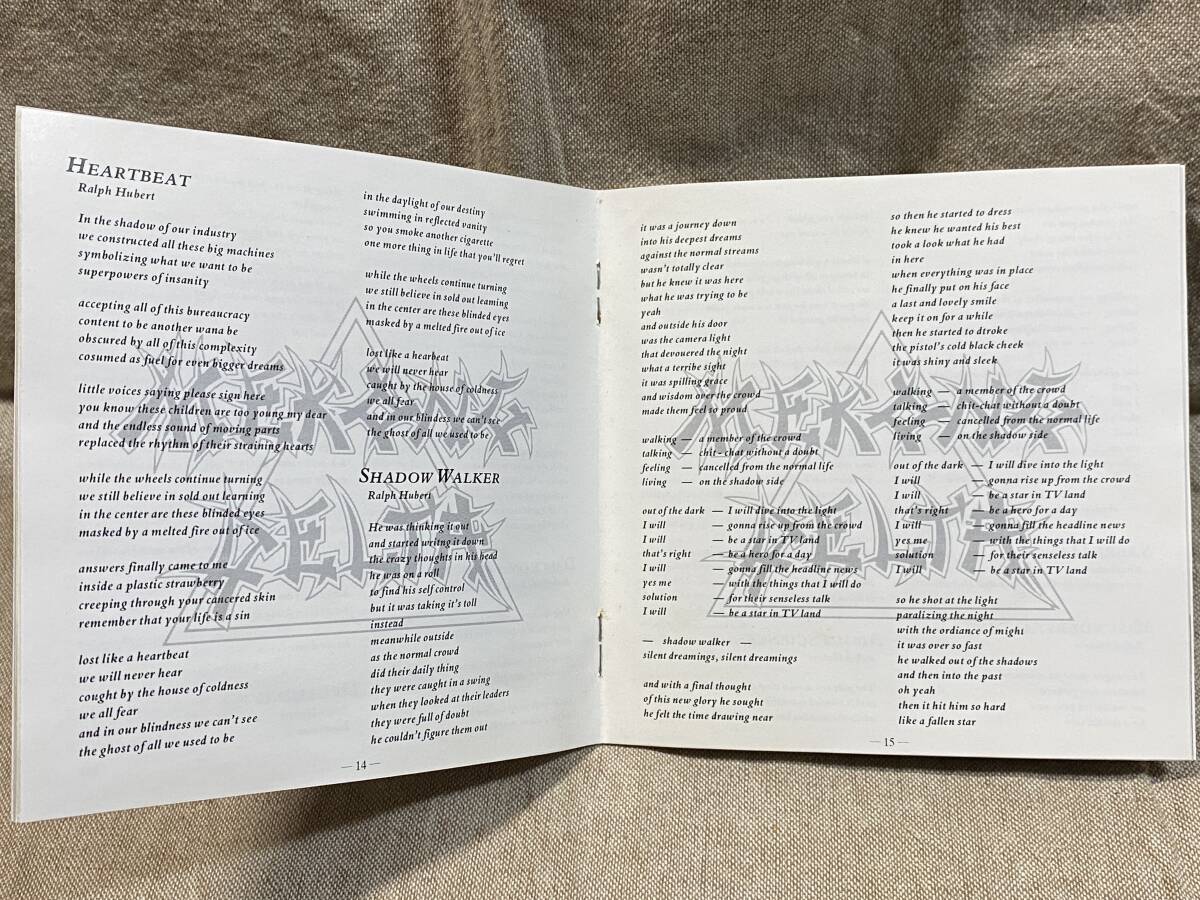 HEARTBEAT
Ralph Hubert
In the shadow of our industry
we constructed all these big machines
symbolizing what we want to be
superpowers of insanity
accepting all of this bureaucracy
content to be another wana be
obscured by all of this complexity
cosumed as fuel for even bigger dreams
little voices saying please sign here
you know these children are too young my dear
and the endless sound of moving parts
replaced the rhythm of their straining hearts
while the wheels continue turning
we still believe in sold out learning
in the center are these blinded eyes
masked by a melted fire out of ice
answers finally came to me
inside a plastic strawberry
creeping through your cancered skin
remember that your life is a sin
lost like a heartbeat
we will never hear
cought by the house of coldness
we all fear
and in our blindness we can't see
the ghost of all we used to be
in the daylight of our destiny
swimming in reflected vanity
so you smoke another cigarette
one more thing in life that you'll regret
while the wheels continue turning
we still believe in sold out leaming
in the center are these blinded eyes
masked by a melted fire out of ice
lost like a hearbeat
we will never hear
caught by the house of coldness
we all fear
and in our blindess we can't see
the ghost of all we used to be
SHADOW WALKER
Ralph Hubert
He was thinking it out
and started writng it down
the crazy thoughts in his head
he was on a roll
to find his self control
but it was taking it's toll
instead
meanwhile outside
as the normal crowd
did their daily thing
they were caught in a swing
when they looked at their leaders
they were full of doubt
he couldn't figure them out
— 14 —
it was a journey down
into his deepest dreams
against the normal streams
wasn't totally clear
but he knew it was here
what he was trying to be
yeah
and outside his door
was the camera light
that devouered the night
what a terribe sight
it was spilling grace
and wisdom over the crowd
made them feel so proud
walking — a member of the crowd
talking — chit - chat without a doubt
feeling — cancelled from the normal life
living — on the shadow side
out of the dark — I will dive into the light
I will — gonna rise up from the crowd
I will — be a star in TV land
that's right — be a hero for a day
I will — gonna fill the headline news
yes me — with the things that I will do
solution — for their senseless talk
I will — be a star in TV land
— shadow walker —
silent dreamings, silent dreamings
and with a final thought
of this new glory he sought
he felt the time drawing near
so then he started to dress
he knew he wanted his best
took a look what he had
in here
when everything was in place
he finally put on his face
a last and lovely smile
keep it on for a while
then he started to dtroke
the pistol's cold black cheek
it was shiny and sleek
walking — a member of the crowd
talking — chit-chat without a doubt
feeling — cancelled from the normal life
living — on the shadow side
out of the dark — I will dive into the light
I will — gonna rise up from the crowd
I will — be a star in TV land
that's right — be a hero for a day
I will — gonna fill the headline news
yes me — with the things that I will do
solution — for their senseless talk
I will — be a star in TV land
so he shot at the light
paralizing the night
with the ordiance of might
it was over so fast
he walked out of the shadows
and then into the past
oh yeah
then it hit him so hard
like a fallen star
— 15 —
MEKONG
DELTA
MEKONG
DELTA